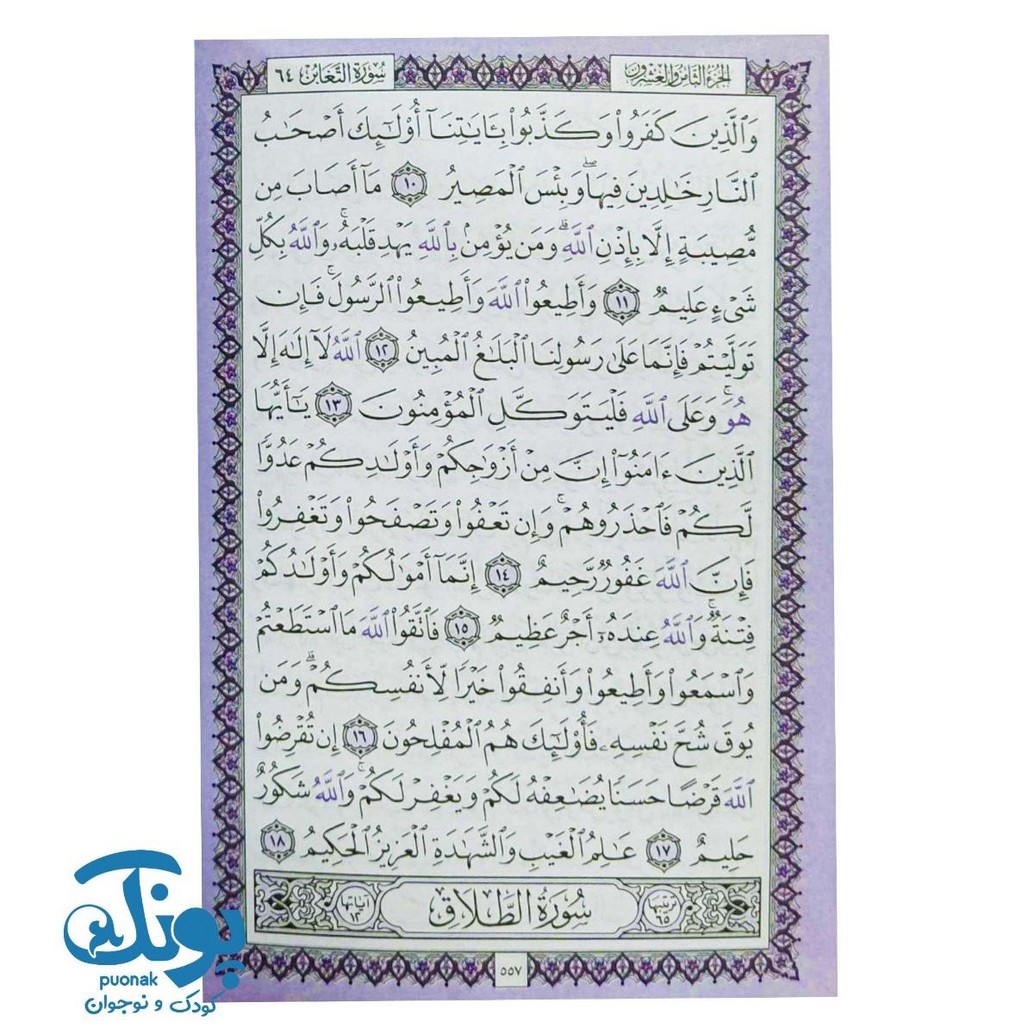 سُورَةُ التَّغَابُن ٦٤
الجزء الثامن والعشرون
وَٱلَّذِينَ كَفَرُوا۟ وَكَذَّبُوا۟ بِـَٔايَـٰتِنَآ أُو۟لَـٰٓئِكَ أَصْحَـٰبُ
ٱلنَّارِ خَـٰلِدِينَ فِيهَا ۖ وَبِئْسَ ٱلْمَصِيرُ ١٠ مَآ أَصَابَ مِن
مُّصِيبَةٍ إِلَّا بِإِذْنِ ٱللَّهِ ۗ وَمَن يُؤْمِنۢ بِٱللَّهِ يَهْدِ قَلْبَهُۥ ۚ وَٱللَّهُ بِكُلِّ
شَىْءٍ عَلِيمٌ ١١ وَأَطِيعُوا۟ ٱللَّهَ وَأَطِيعُوا۟ ٱلرَّسُولَ ۚ فَإِن
تَوَلَّيْتُمْ فَإِنَّمَا عَلَىٰ رَسُولِنَا ٱلْبَلَـٰغُ ٱلْمُبِينُ ١٢ ٱللَّهُ لَآ إِلَـٰهَ إِلَّا
هُوَ ۚ وَعَلَى ٱللَّهِ فَلْيَتَوَكَّلِ ٱلْمُؤْمِنُونَ ١٣ يَـٰٓأَيُّهَا
ٱلَّذِينَ ءَامَنُوٓا۟ إِنَّ مِنْ أَزْوَٰجِكُمْ وَأَوْلَـٰدِكُمْ عَدُوًّا
لَّكُمْ فَٱحْذَرُوهُمْ ۚ وَإِن تَعْفُوا۟ وَتَصْفَحُوا۟ وَتَغْفِرُوا۟
فَإِنَّ ٱللَّهَ غَفُورٌ رَّحِيمٌ ١٤ إِنَّمَآ أَمْوَٰلُكُمْ وَأَوْلَـٰدُكُمْ
فِتْنَةٌ ۚ وَٱللَّهُ عِندَهُۥٓ أَجْرٌ عَظِيمٌ ١٥ فَٱتَّقُوا۟ ٱللَّهَ مَا ٱسْتَطَعْتُمْ
وَٱسْمَعُوا۟ وَأَطِيعُوا۟ وَأَنفِقُوا۟ خَيْرًا لِّأَنفُسِكُمْ ۗ وَمَن
يُوقَ شُحَّ نَفْسِهِۦ فَأُو۟لَـٰٓئِكَ هُمُ ٱلْمُفْلِحُونَ ١٦ إِن تُقْرِضُوا۟
ٱللَّهَ قَرْضًا حَسَنًا يُضَـٰعِفْهُ لَكُمْ وَيَغْفِرْ لَكُمْ ۚ وَٱللَّهُ شَكُورٌ
حَلِيمٌ ١٧ عَـٰلِمُ ٱلْغَيْبِ وَٱلشَّهَـٰدَةِ ٱلْعَزِيزُ ٱلْحَكِيمُ ١٨
ترتيبها ٦٥ سُورَةُ الطَّلَاقِ آياتها ١٢
٥٥٧
پونک
puonak
کودک و نوجوان